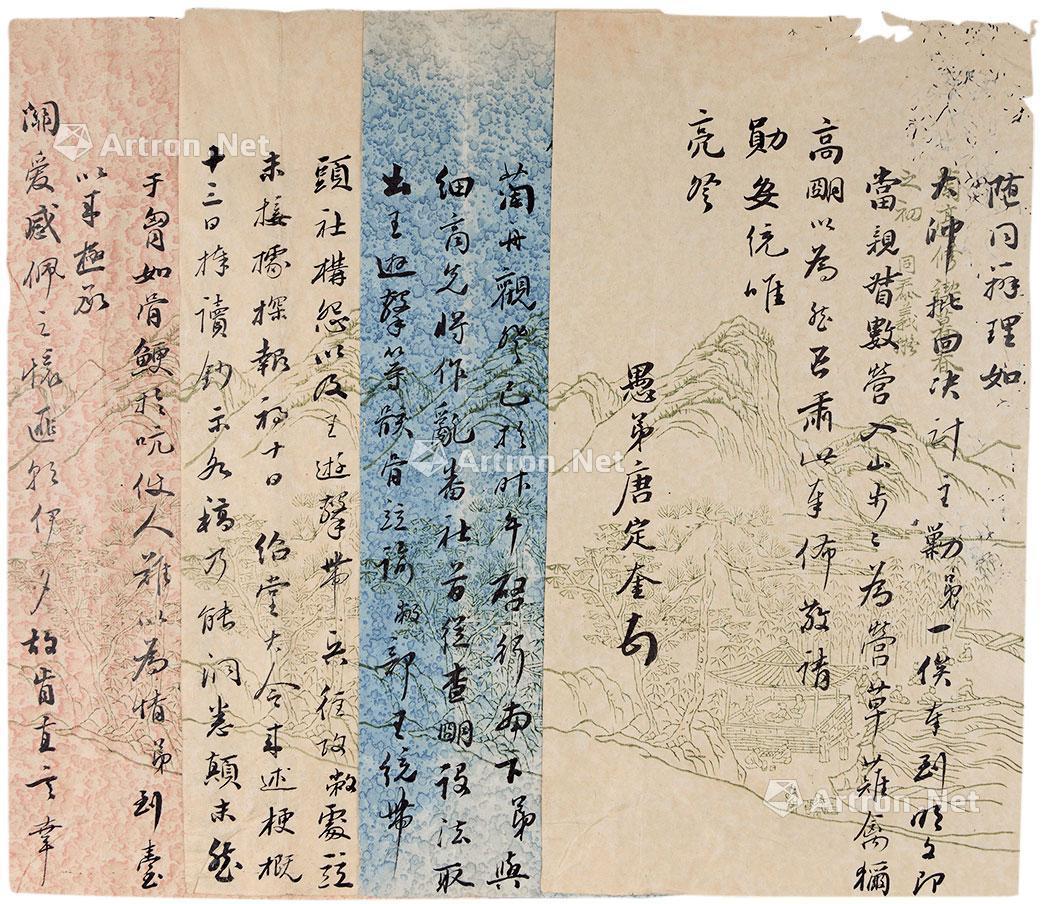 随同辦理如
大帥載面決計主勦弟一俟奉到明文即
當親督數營入山步之為營草薙禽獮
高明以為然否肅此奉佈敬請
勛安統唯
亮詧
愚弟唐定奎頓
蘭舟觀察已於昨午啓行南下弟與
細商先將作亂番社首從查明設法取
出王遊擊等骸骨
敝部王統帶
頭社構怨以及王遊擊帶兵往攻
未接據探報初十日 紹堂大令來述梗概
十三日捧讀鈔示各稿乃能洞悉顛末然
于胸如骨鯁於吭使人難以為情弟到臺
以來極承
關愛感佩之懷匪朝伊夕故肯直言幸
Artron.Net
Artron.Net
Artron.Net